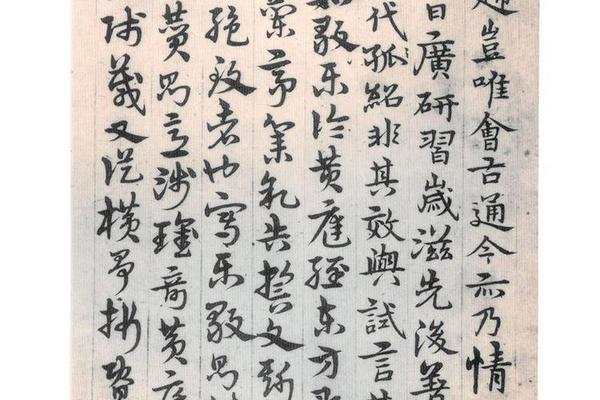 豈唯會古通今亦乃情
日廣研習歲滋先後著
代孤紹非其效與試言其
如樂毅論黃庭經東方朔
蘭亭集序告誓文斯
絕致者也寫樂毅則
贊則意涉瑰奇黃庭
師箴又從橫爭折暨